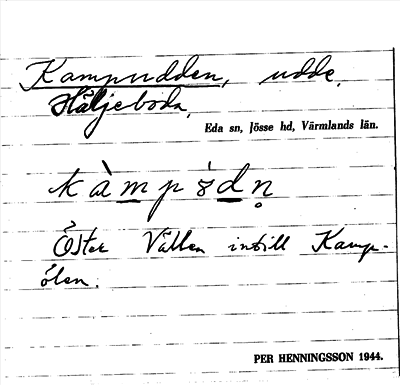 Kampudden, udde.
Häljeboda,
Eda sn, Jösse hd, Värmlands län.
kàmpòdṇ
Öster Vällen intill Kamp-
ölen.
PER HENNINGSSON 1944.